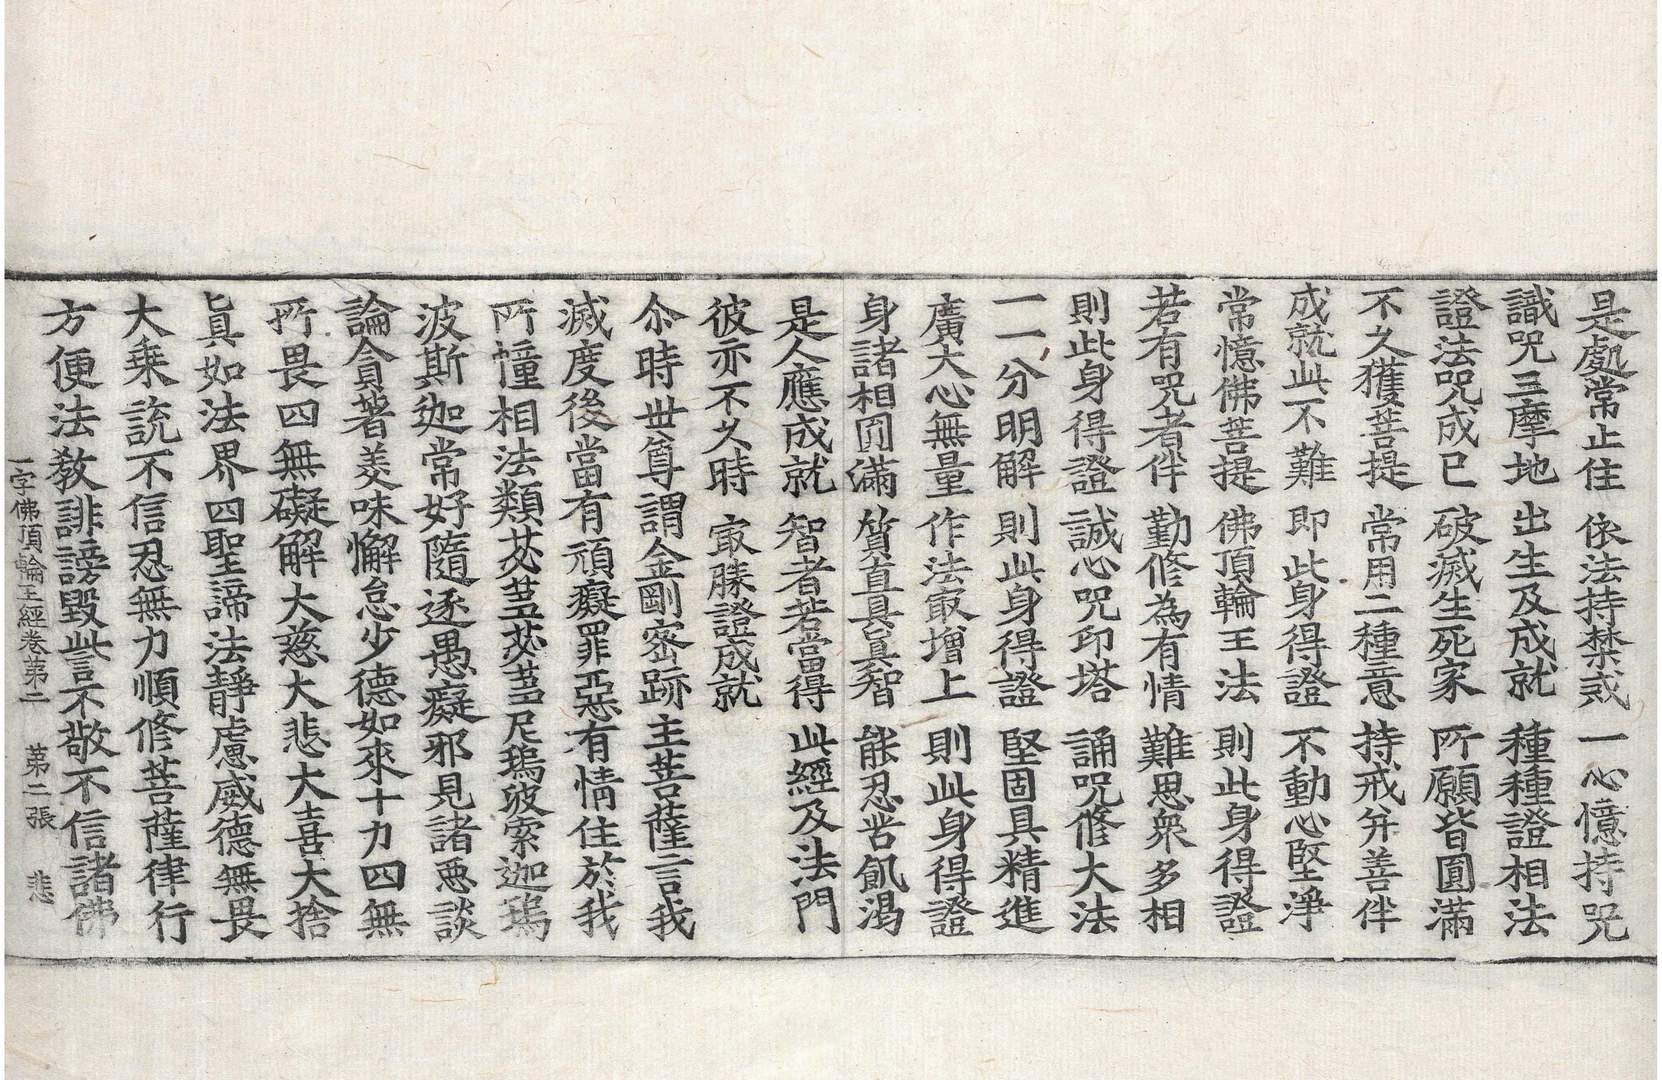 是處常止住　依法持禁戒　一心憶持咒
識咒三摩地　出生及成就　種種證相法
證法咒成已　破滅生死家　所願皆圓滿
不久獲菩提　常用二種意　持戒弁善伴
成就此不難　即此身得證　不動心堅淨
常憶佛菩提　佛頂輪王法　則此身得證
若有咒者伴　勤修為有情　難思衆多相
則此身得證　誠心咒印塔　誦咒修大法
一一分明解　則此身得證　堅固具精進
廣大心無量　作法㝡增上　則此身得證
身諸相圓滿　質直具真智　能忍苦飢渴
是人應成就　智者若當得　此經及法門
彼亦不久時　㝡勝證成就
尒時世尊謂金剛密跡主菩薩言我
滅度後當有頑癡罪惡有情住於我
所憧相法類苾芻苾芻尼鄔波索迦鄔
波斯迦常好隨逐愚癡邪見諸惡談
論貪著美味懈怠少德如來十力四無
所畏四無礙解大慈大悲大喜大捨
真如法界四聖諦法靜慮威德無畏
大乗說不信忍無力順修菩薩律行
方便法教誹謗毀呰言不敬不信諸佛
一字佛頂輪王經卷第二　第二張　悲